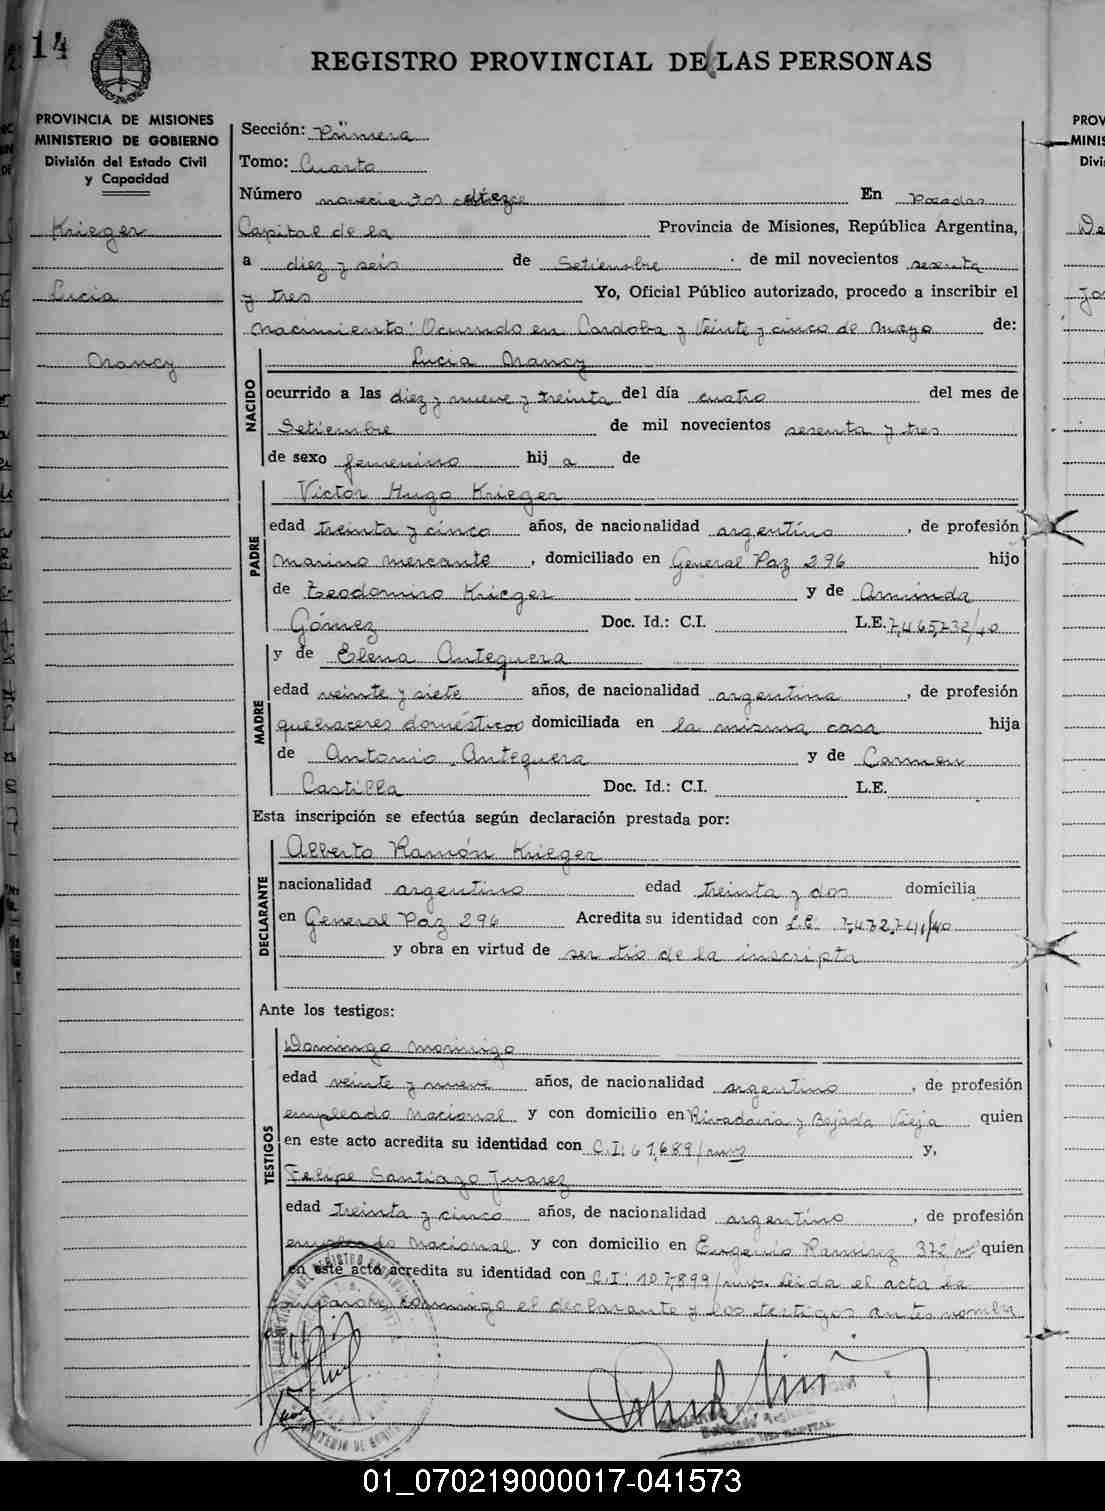 14
REGISTRO PROVINCIAL DE LAS PERSONAS
PROVINCIA DE MISIONES
MINISTERIO DE GOBIERNO
División del Estado Civil
y Capacidad
Krieger
Lucia
Nancy
Sección: Primera
Tomo: Cuarto
Número novecientos En Posadas
Capital de la Provincia de Misiones, República Argentina,
a diez y seis de Setiembre de mil novecientos sesenta
y tres Yo, Oficial Público autorizado, procedo a inscribir el
nacimiento: Ocurrido en Cordoba y Veinte y cinco de mayo de:
NACIDO
Lucia Nancy
ocurrido a las diez y nueve y treinta del día cuatro del mes de
Setiembre de mil novecientos sesenta y tres
de sexo femenino hij a de
PADRE
Victor Hugo Krieger
edad treinta y cinco años, de nacionalidad argentino, de profesión
marino mercante, domiciliado en General Paz 296 hijo
de Teodomiro Krieger y de Arminda
Gómez Doc. Id.: C.I. L.E. 7,465,232/40
y de Elena Antequera
MADRE
edad veinte y siete años, de nacionalidad argentina, de profesión
quehaceres domésticos domiciliada en la misma casa hija
de Antonio Antequera y de Carmen
Castilla Doc. Id.: C.I. L.E.
Esta inscripción se efectúa según declaración prestada por:
DECLARANTE
Alberto Ramón Krieger
nacionalidad argentino edad treinta y dos domicilia
en General Paz 296 Acredita su identidad con L.E. 7,472,741/40
y obra en virtud de ser tío de la inscripta
Ante los testigos:
TESTIGOS
Domingo Morinigo
edad veinte y nueve años, de nacionalidad argentino, de profesión
empleado Nacional y con domicilio en Rivadavia y Bajada Vieja quien
en este acto acredita su identidad con C.I: 61,689/mnes y,
Felipe Santiago Juarez
edad treinta y cinco años, de nacionalidad argentino, de profesión
empleado Nacional y con domicilio en Eugenio Ramirez 372/ quien
en este acto acredita su identidad con C.I: 107,899/mnes. Leida el acta la
conmigo el declarante y los testigos antes nombra
PROV
MINIS
Divi
01_070219000017-041573